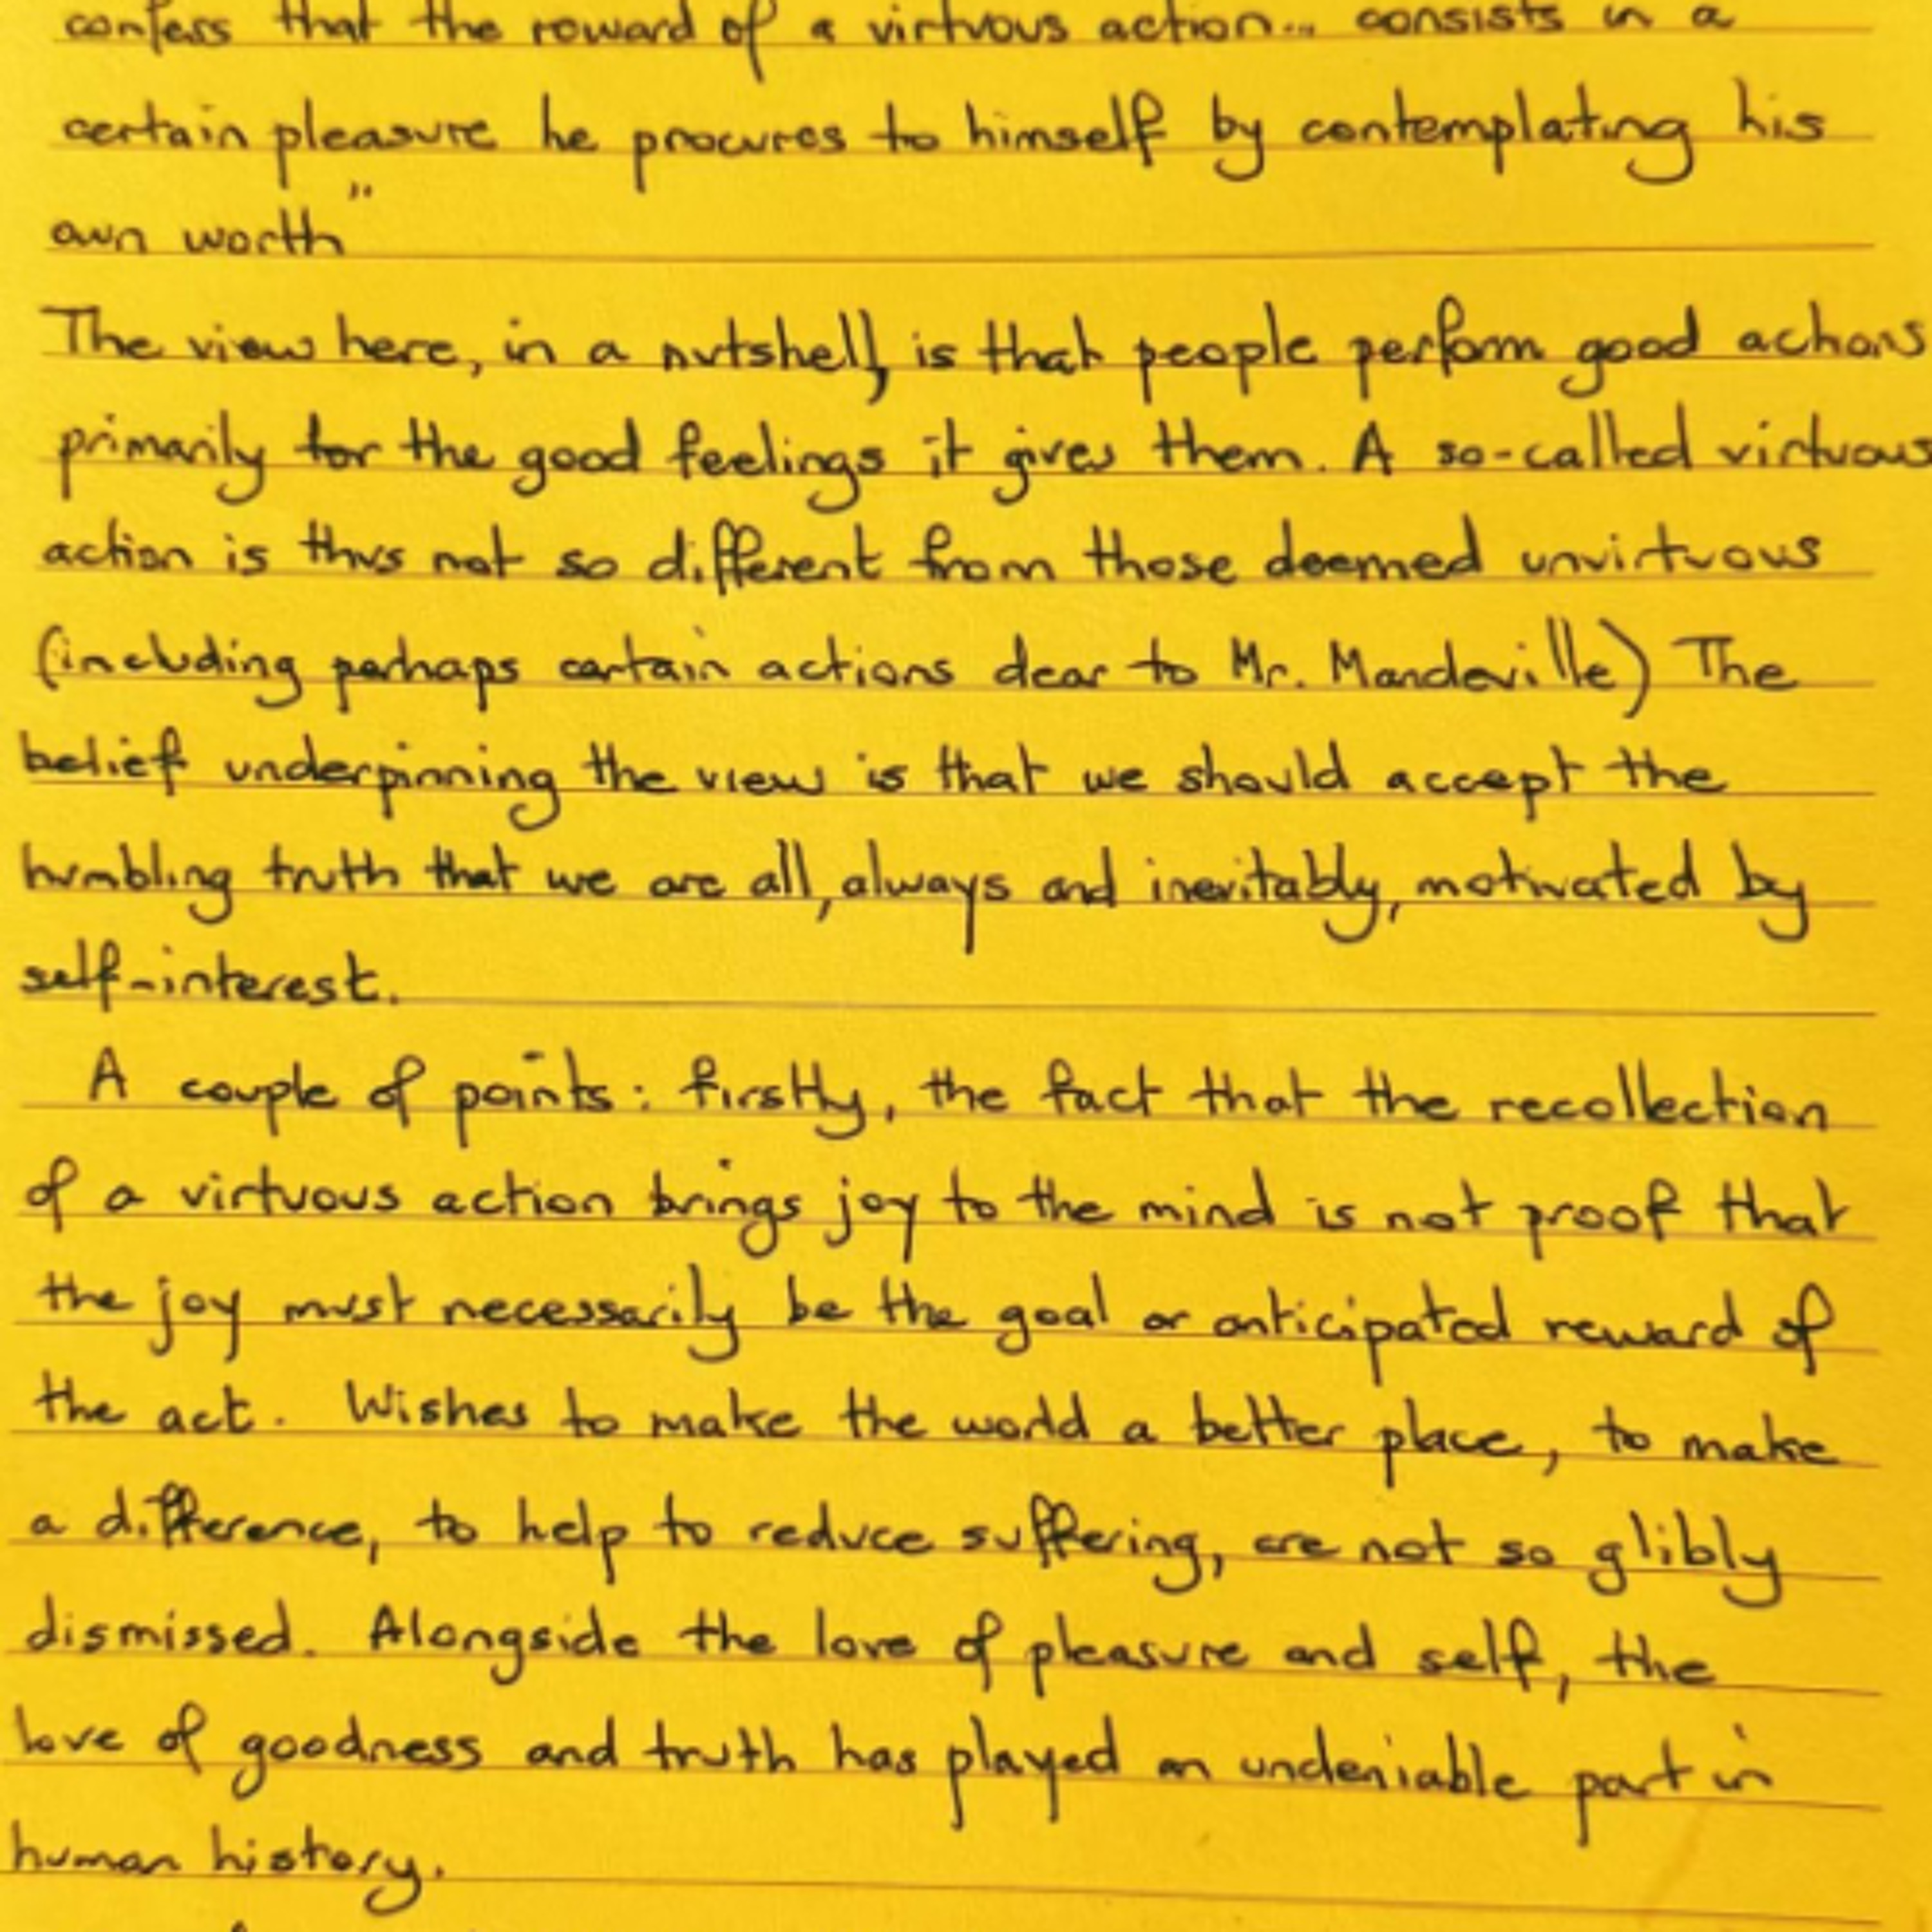 confess that the reward of a virtuous action... consists in a
certain pleasure he procures to himself by contemplating his
own worth"
The view here, in a nutshell, is that people perform good actions
primarily for the good feelings it gives them. A so-called virtuous
action is thus not so different from those deemed unvirtuous
(including perhaps certain actions dear to Mr. Mandeville) The
belief underpinning the view is that we should accept the
humbling truth that we are all, always and inevitably, motivated by
self-interest.
A couple of points: firstly, the fact that the recollection
of a virtuous action brings joy to the mind is not proof that
the joy must necessarily be the goal or anticipated reward of
the act. Wishes to make the world a better place, to make
a difference, to help to reduce suffering, are not so glibly
dismissed. Alongside the love of pleasure and self, the
love of goodness and truth has played an undeniable part in
human history.